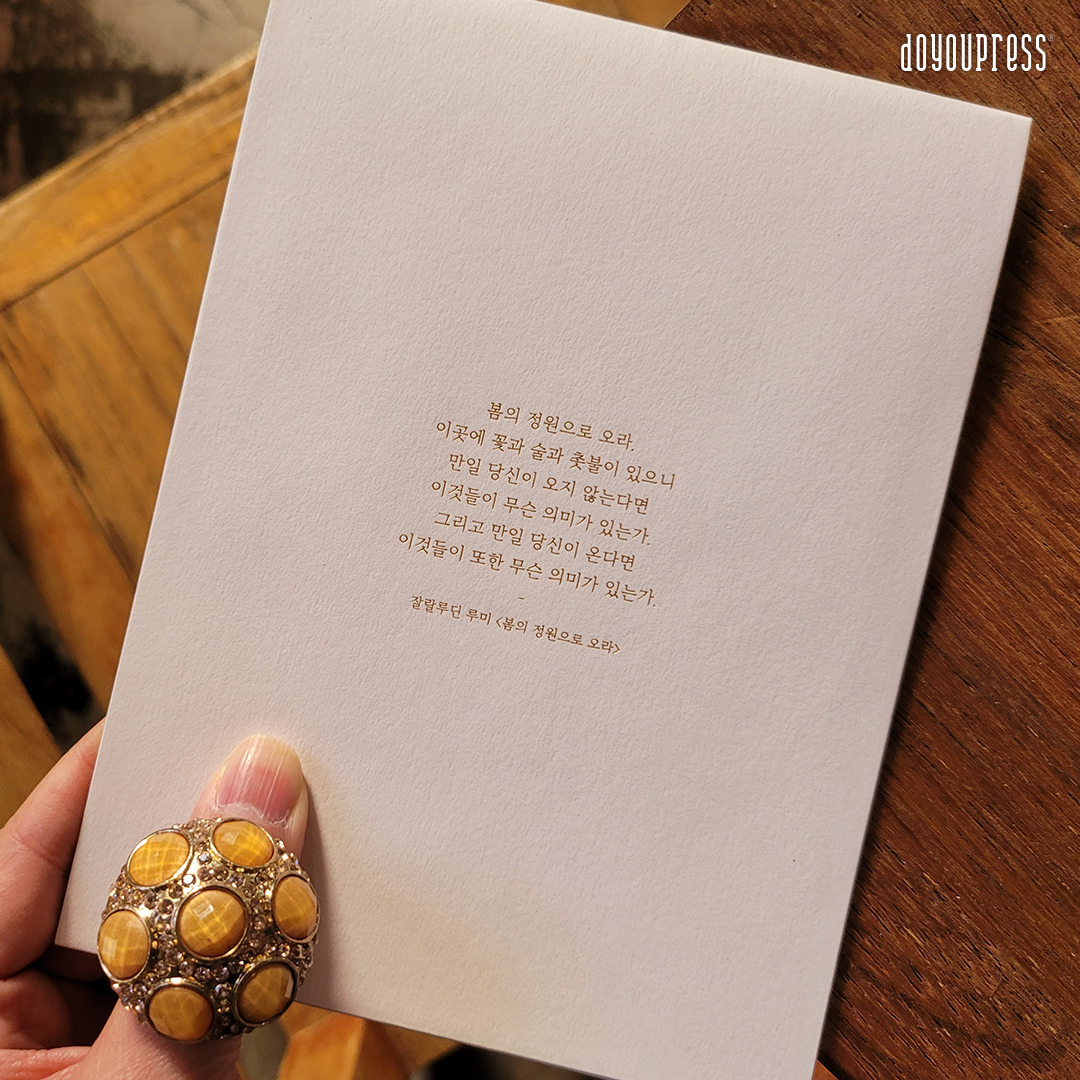 doyoupress®
봄의 정원으로 오라.
이곳에 꽃과 술과 촛불이 있으니
만일 당신이 오지 않는다면
이것들이 무슨 의미가 있는가.
그리고 만일 당신이 온다면
이것들이 또한 무슨 의미가 있는가.
-
잘랄루딘 루미 <봄의 정원으로 오라>